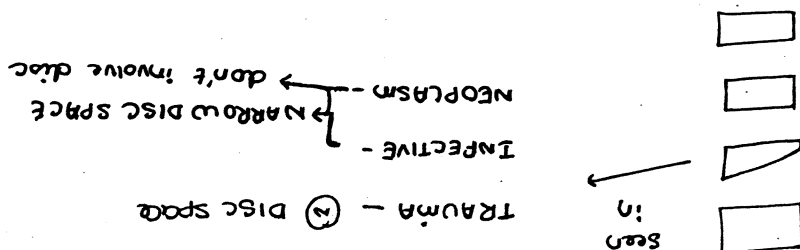 seen
in
TRAUMA – Ⓝ DISC SPACE
INFECTIVE -
→ NARROW DISC SPACE
NEOPLASM - → don't involve disc